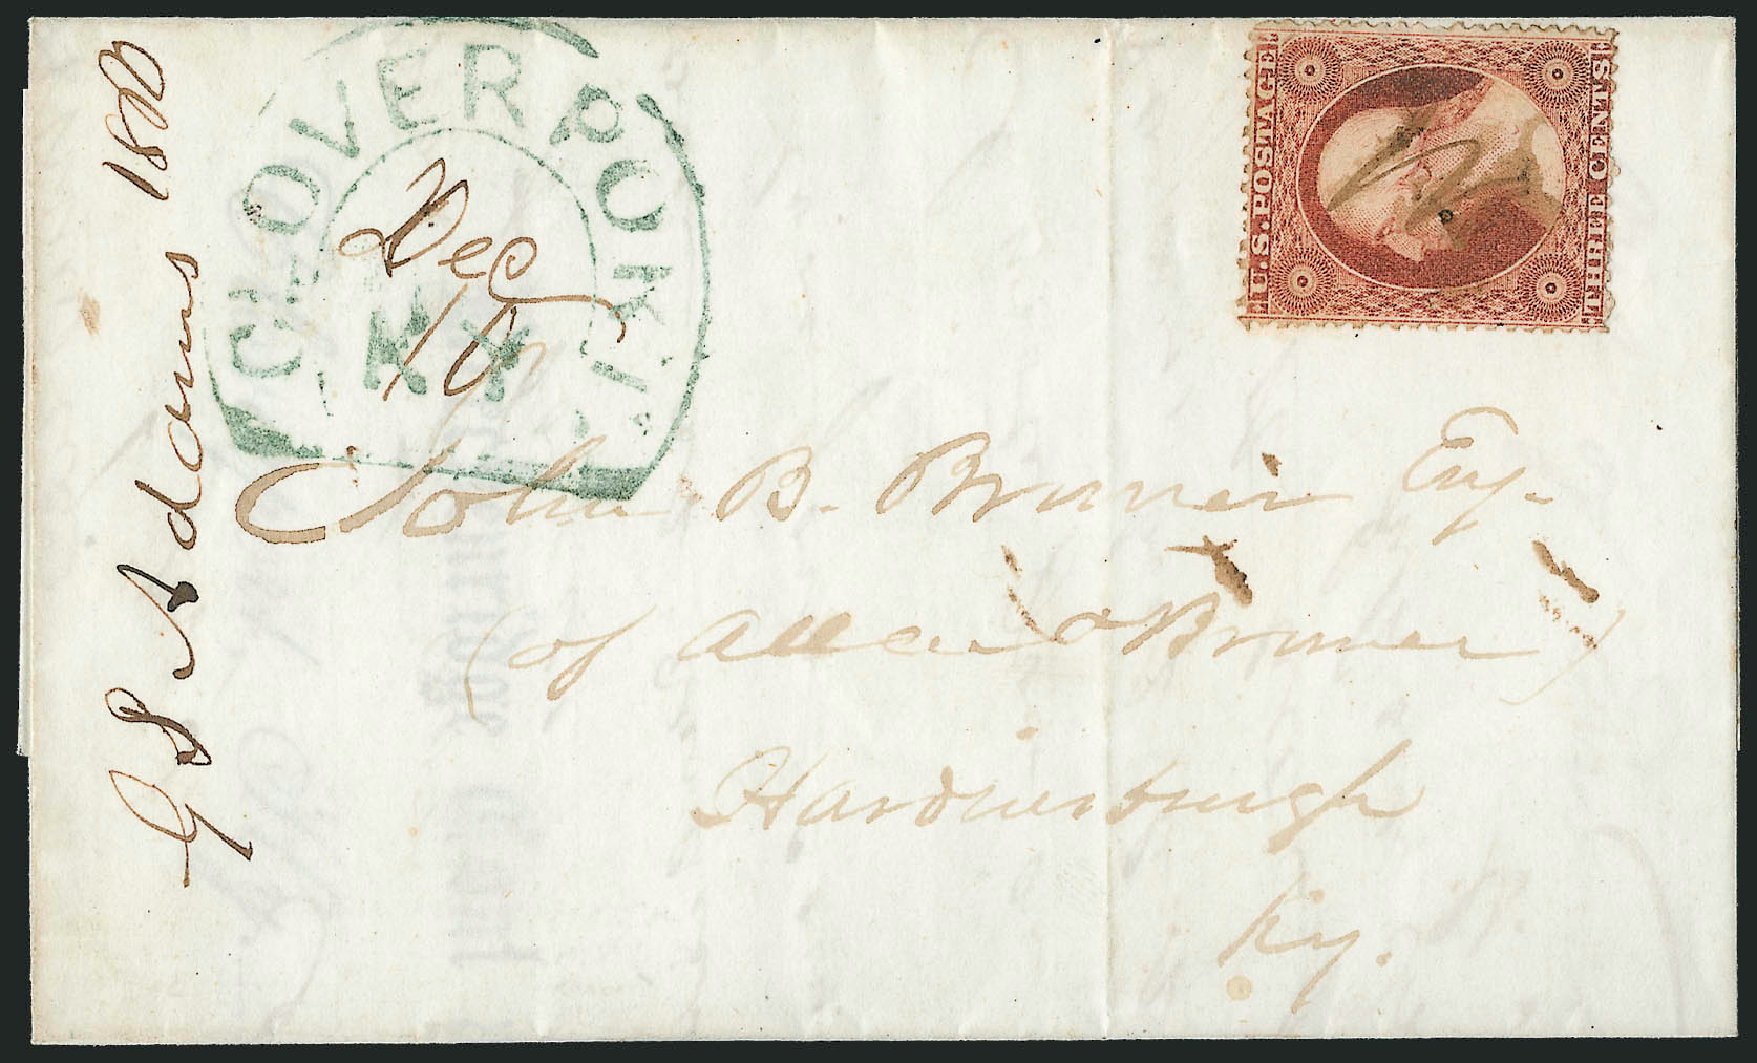 CLOVERPORT
KY
Dec
10
U.S. POSTAGE
THREE CENTS
John B. Bruner Esq.
(of Allen & Bruner)
Hardinsburgh
Ky.
G S Adams 1860